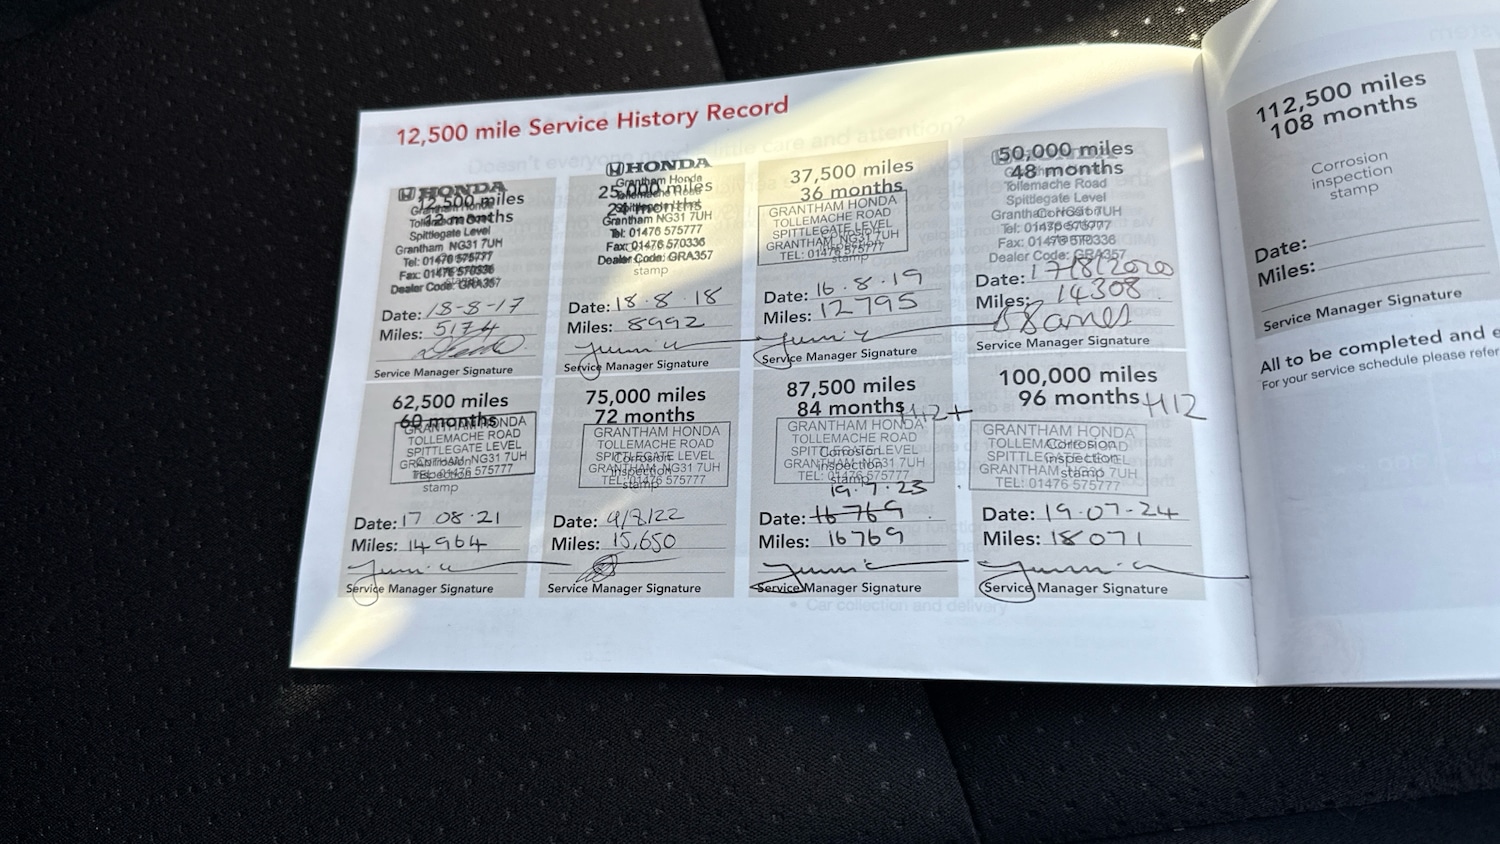 12,500 mile Service History Record
HONDA
12,500 miles
12 months
Grantham Honda
Tollemache Road
Spittlegate Level
Grantham NG31 7UH
Tel: 01476 575777
Fax: 01476 570336
Dealer Code: GRA357
Date: 18-8-17
Miles: 5174
Service Manager Signature
HONDA
25,000 miles
24 months
Grantham Honda
Tollemache Road
Spittlegate Level
Grantham NG31 7UH
Tel: 01476 575777
Fax: 01476 570336
Dealer Code: GRA357
stamp
Date: 18.8.18
Miles: 8992
Service Manager Signature
37,500 miles
36 months
GRANTHAM HONDA
TOLLEMACHE ROAD
SPITTLEGATE LEVEL
GRANTHAM, NG31 7UH
TEL: 01476 575777
stamp
Date: 16.8.19
Miles: 12795
Service Manager Signature
50,000 miles
48 months
Tollemache Road
Spittlegate Level
Grantham NG31 7UH
Tel: 01476 575777
Fax: 01476 570336
Dealer Code: GRA357
Date: 17/8/2020
Miles: 14308
Service Manager Signature
62,500 miles
60 months
GRANTHAM HONDA
TOLLEMACHE ROAD
SPITTLEGATE LEVEL
GRANTHAM, NG31 7UH
TEL: 01476 575777
Corrosion
inspection
stamp
Date: 17 08.21
Miles: 14964
Service Manager Signature
75,000 miles
72 months
GRANTHAM HONDA
TOLLEMACHE ROAD
SPITTLEGATE LEVEL
GRANTHAM, NG31 7UH
TEL: 01476 575777
Corrosion
inspection
stamp
Date: 9/8/22
Miles: 15,650
Service Manager Signature
87,500 miles
84 months H12+
GRANTHAM HONDA
TOLLEMACHE ROAD
SPITTLEGATE LEVEL
GRANTHAM, NG31 7UH
TEL: 01476 575777
Corrosion
inspection
stamp
19.7.23
Date: 16769
Miles: 16769
Service Manager Signature
100,000 miles
96 months H12
GRANTHAM HONDA
TOLLEMACHE ROAD
SPITTLEGATE LEVEL
GRANTHAM, NG31 7UH
TEL: 01476 575777
Corrosion
inspection
stamp
Date: 19.07-24
Miles: 18071
Service Manager Signature
112,500 miles
108 months
Corrosion
inspection
stamp
Date:
Miles:
Service Manager Signature
All to be completed and
For your service schedule please refer